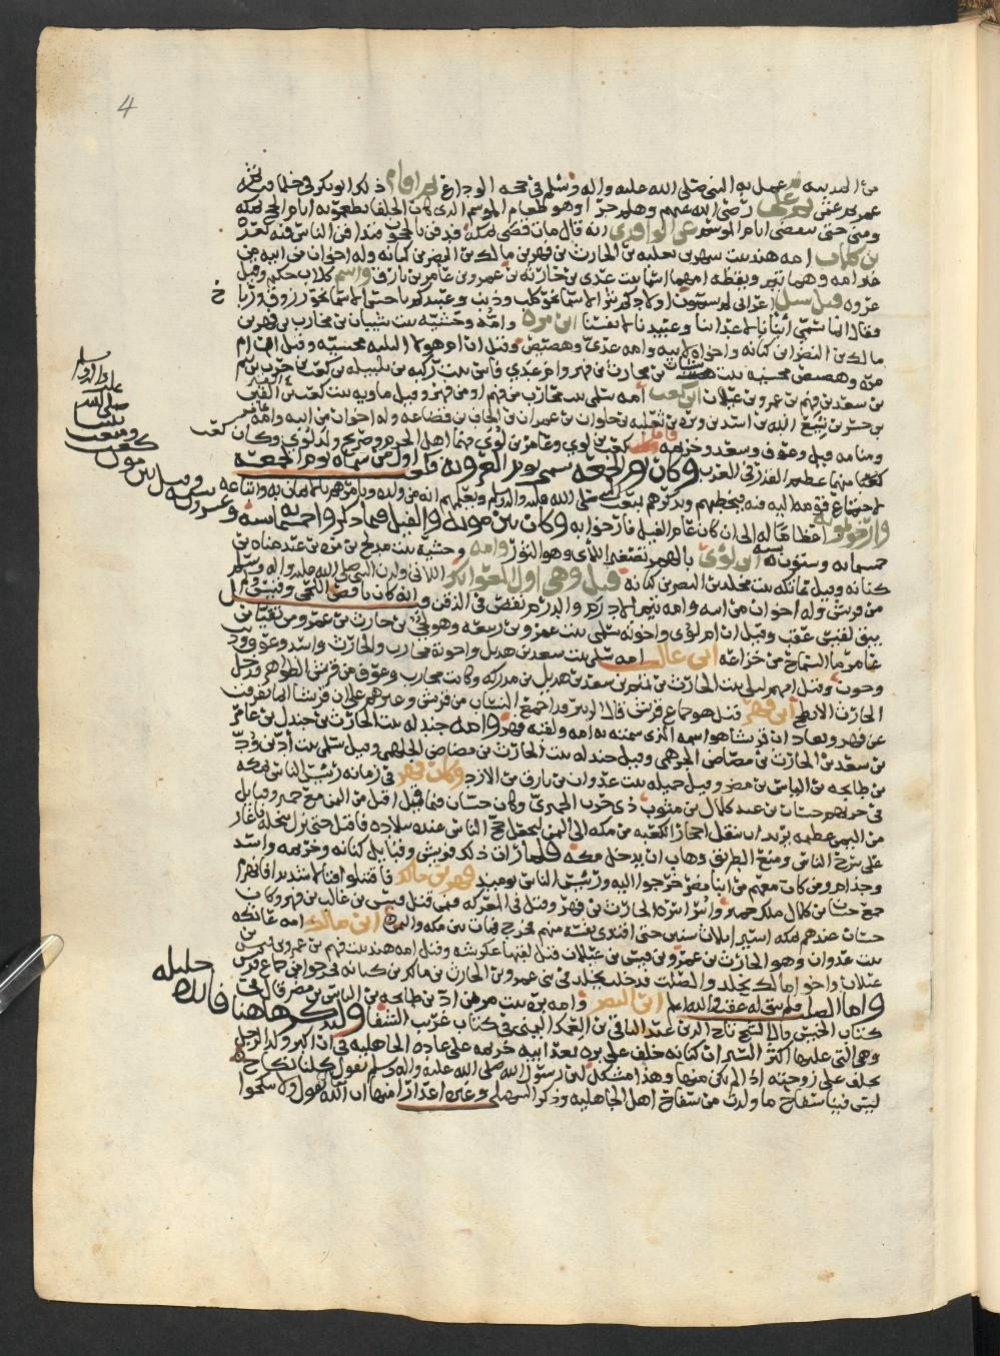 4
من المدينة ثم عمل به النبي صلى الله عليه واله وسلم في حجة الوداع ثم اقام ذلك ابو بكر في خلافته
عمر ثم عثمن ثم علي رضي الله عنهم وهلم جرا وهو طعام الموسم الذي كان الخلفا تطعمونه ايام الحج بمكة
ومنى حتى تنقضي ايام الموسم عن الواقدي انه قال مات قصي بمكة فدفن بالحجون فتدافن الناس فيه بعده
بن كلاب امه هند بنت سرير بن ثعلبه بن الحارث بن فهر بن مالك بن النضر بن كنانه وله اخوان من ابيه من
غير امه وهما تيم ويقظه امهما اسما بنت عدي بن حارثه بن عمرو بن عامر بن بارق واسم كلاب حكيم وقيل
عروه قيل سيل اعرابي لم تسمون اولادكم شر الاسما نحو كلب وذيب وعبيدكم باحسن الاسما نحو مرزوق ورباح
فقال انما نسمي ابنانا لاعداينا وعبيدنا لانفسنا ابن مره وامه وحشيه بنت شيبان بن محارب بن فهر بن
مالك بن النضر بن كنانه واخواه لابيه وامه عدي وهصيص وقيل ان ام هولا الثلثه مخشيه وقيل ان ام
مره وهصيص مخشيه بنت شيبان بن محارب بن فهر وام عدي رقاش بنت ركبه بن بليله بن كعب بن حرب بن تيم
بن سعد بن فهم بن عمرو بن قيس عيلان ابن كعب امه سلمى بنت محارب من فهم او من فهر وقيل ماويه بنت كعب بن القين
بن جسر بن شيع الله بن اسد بن وبره بن ثعلبه بن حلوان بن عمران بن الحاف بن قضاعه وله اخوان من ابيه وامه عامر
وسامه قيل وعوف وسعد وخزيمه كعب بن لوي وعامر بن لوي فهما اهل الحرم وصريح ولد لوي وكان كعب
كعب منهما عظيم القدر في العرب وكان يوم الجمعه يسمى يوم العروبه كعب اول من سماه يوم الجمعه
لاجتماع قومه اليه فيه فيخطبهم ويذكرهم بمبعث النبي صلى الله عليه واله وسلم ويعلمهم انه من ولده ويامرهم بالايمان به واتباعه
وارخو بموته اعظاما له الى ان كان عام الفيل فارخوا به وكان بين موته والفيل فيما ذكروا خمسمايه وعشرون سنه وقيل بين موت كعب ومبعث نبينا صلى الله عليه واله وسلم
خمسمايه وستون سنه ابن لؤي بالهمز تصغير اللاى وهو الثور وامه وحشيه بنت مدلج بن مره بن عبد مناه بن
كنانه وقيل عاتكه بنت مخلد بن النضر بن كنانه قيل وهي اول العواتك اللاتي ولدن النبي صلى الله عليه واله وسلم
من قريش وله اخوان من ابيه وامه تيم الادرم والدرم نقص في الذقن وانه كان ناقص اللحي وقيس ولم
يبق لقيس عقب وقيل ان ام لؤي واخوته سلمى بنت عمرو بن ربيعه وهو لحي بن حارثه بن عمرو مزيقيا بن
عامر ما السما من خزاعه ابن غالب امه سلمى بنت سعد بن هذيل واخوته محارب والحارث واسد وعوف
وجون وقيل امهم ليلى بنت الحارث بن تميم بن سعد بن هذيل بن مدركه وكانت محارب وعوف من قريش الظواهر ودخل
الحارث الابطح ابن فهر قيل هو جماع قريش قال الزبير قد اجمع النساب من قريش وغيرهم على ان قريشا انما تفرقت
عن فهر ويقال ان قريشا هو اسمه الذي سمته به امه ولقبه فهر وامه جندله بنت الحارث بن جندل بن عامر
بن سعد بن الحارث بن مضاض الجرهمي وقيل جندله بنت الحارث بن مضاض الجرهمي وقيل سلمى بنت اد بن
بن طابخه بن الياس بن مضر وقيل جميله بنت عدوان بن بارق من الازد وكان فهر في زمانه رئيس الناس بمكه
في حربهم حسان بن عبد كلال بن مثوب ذي حرب الحميري وكان حسان فيما قيل اقبل من اليمن مع حمير وقبايل
من اليمن عظيمه يريد ان ينقل احجار الكعبه من مكه الى اليمن ليجعل حج الناس عنده ببلاده فاقبل حتى نزل بنخله فاغار
على سرح الناس ومنع الطريق وهاب ان يدخل مكه فلما راى ذلك قريش وقبايل كنانه وخزيمه واسد
وجذام ومن كان معهم من ابنا مضر خرجوا اليه ورئيس الناس يومئذ فهر بن مالك فاقتتلوا قتالا شديدا فانهزم
جمع حسان بن كلال ملك حمير واسر اسره الحارث بن فهر وقتل في المعركه فيمن قتل قيس بن غالب بن فهر وكان
حسان عندهم بمكه اسيرا ثلاث سنين حتى افتدى نفسه منهم فخرج فمات بين مكه واليمن ابن مالك امه عاتكه
بنت عدوان وهو الحارث بن عمرو بن قيس بن عيلان قيل لقبها عكرشه وقيل امه هند بنت فهم بن عمرو بن قيس بن
عيلان واخوا مالك يخلد والصلت فدخل يخلد في بني عمرو بن الحارث بن مالك بن كنانه فخرجوا من جماع قريش
واما الصلت فلم يبق له عقب والله اعلم ابن النضر وامه بره بنت مر بن اد بن طابخه بن الياس بن مضر قال في
كتاب الخميس قال الشيخ تاج الدين عبد الباقي بن عبد المجيد اليمني في كتاب غريب الشفا ولنذكر هاهنا فايده جليله
وهي التي عليها اكثر السير ان كنانه خلف على بره بعد ابيه خزيمه على عاده الجاهليه في ان اكبر ولد الرجل
يخلف على زوجته اذا لم يكن منها وهذا مشكل لان رسول الله صلى الله عليه واله وسلم يقول كلنا نكاح
ليس فينا سفاح ما ولدت من سفاح اهل الجاهليه وذكر السهيلي وغيره اعذارا منها ان الله يقول ولا تنكحوا